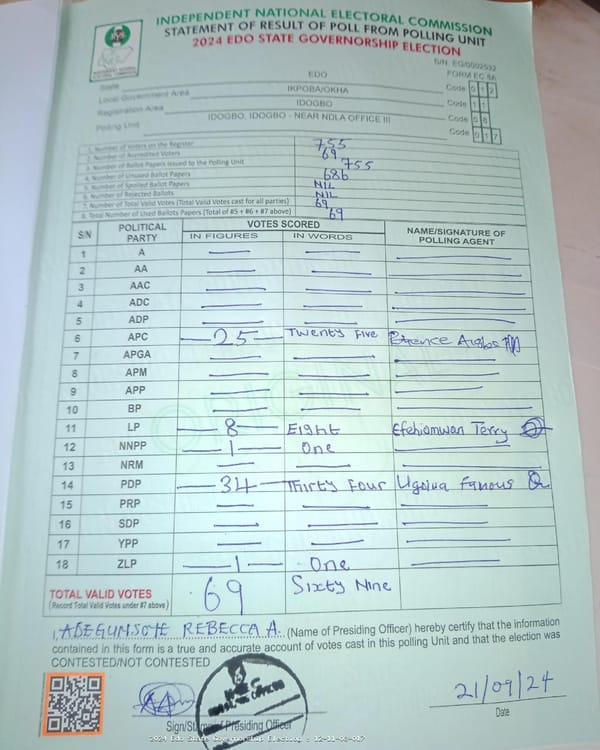 INDEPENDENT NATIONAL ELECTORAL COMMISSION
STATEMENT OF RESULT OF POLL FROM POLLING UNIT
2024 EDO STATE GOVERNORSHIP ELECTION
S/N: EG/0002532
FORM EC 8A
State EDO Code 0 1 2
Local Government Area IKPOBA/OKHA Code 1 1
Registration Area IDOGBO Code 0 8
Polling Unit IDOGBO, IDOGBO - NEAR NDLA OFFICE III Code 0 1 7
1. Number of Voters on the Register 755
2. Number of Accredited Voters 69
3. Number of Ballot Papers Issued to the Polling Unit 755
4. Number of Unused Ballot Papers 686
5. Number of Spoiled Ballot Papers NIL
6. Number of Rejected Ballots NIL
7. Number of Total Valid Votes (Total Valid Votes cast for all parties) 69
8. Total Number of Used Ballots Papers (Total of #5 + #6 + #7 above) 69
S/N POLITICAL PARTY VOTES SCORED NAME/SIGNATURE OF POLLING AGENT
IN FIGURES IN WORDS
1 A
2 AA
3 AAC
4 ADC
5 ADP
6 APC 25 Twenty Five
7 APGA
8 APM
9 APP
10 BP
11 LP 8 Eight Efehiomwan Terry
12 NNPP 1 One
13 NRM
14 PDP 34 Thirty Four Famous
15 PRP
16 SDP
17 YPP
18 ZLP 1 One
TOTAL VALID VOTES 69 Sixty Nine
(Record Total Valid Votes under #7 above)
I, REBECCA A. (Name of Presiding Officer) hereby certify that the information
contained in this form is a true and accurate account of votes cast in this polling Unit and that the election was
CONTESTED/NOT CONTESTED
21/09/24
Sign/Stamp of Presiding Officer Date
2024 Edo State Governorship Election : 12-11-08-017